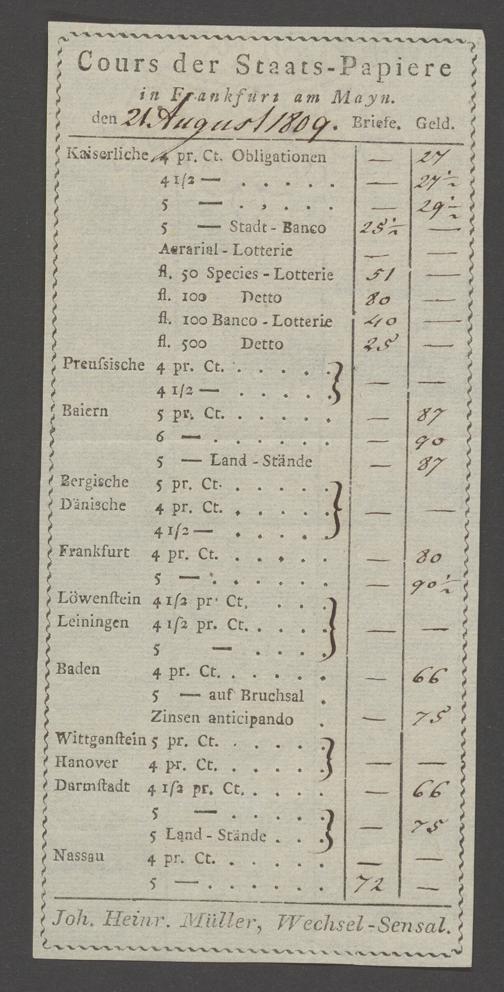 Cours der Staats-Papiere
in Frankfurt am Mayn.
den 21. August 1809. Briefe. Geld.
Kaiserliche 4 pr. Ct. Obligationen — 27
4 1/2 — . . . . . — 27 1/2
5 — . . . . . — 29 1/2
5 — Stadt-Banco 25 1/2 —
Aerarial-Lotterie — —
fl. 50 Species-Lotterie 51 —
fl. 100 Detto 80 —
fl. 100 Banco-Lotterie 40 —
fl. 500 Detto 25 —
Preuſsische 4 pr. Ct. . . . . .
4 1/2 — . . . . . } — —
Baiern 5 pr. Ct. . . . . . — 87
6 — . . . . . . — 90
5 — Land-Stände — 87
Bergische 5 pr. Ct. . . . . .
Dänische 4 pr. Ct. . . . . . } — —
4 1/2 — . . . . .
Frankfurt 4 pr. Ct. . . . . . — 80
5 — . . . . . . — 90 1/2
Löwenſtein 4 1/2 pr. Ct. . . .
Leiningen 4 1/2 pr. Ct. . . . . } — —
5 — . . . .
Baden 4 pr. Ct. . . . . . — 66
5 — auf Bruchsal .
Zinsen anticipando . — 75
Wittgenſtein 5 pr. Ct. . . . . .
Hanover 4 pr. Ct. . . . . . } — —
Darmſtadt 4 1/2 pr. Ct. . . . . — 66
5 — . . . . .
5 Land-Stände . . . } — 75
Nassau 4 pr. Ct. . . . . . — —
5 — . . . . . . 72 —
Joh. Heinr. Müller, Wechsel-Sensal.